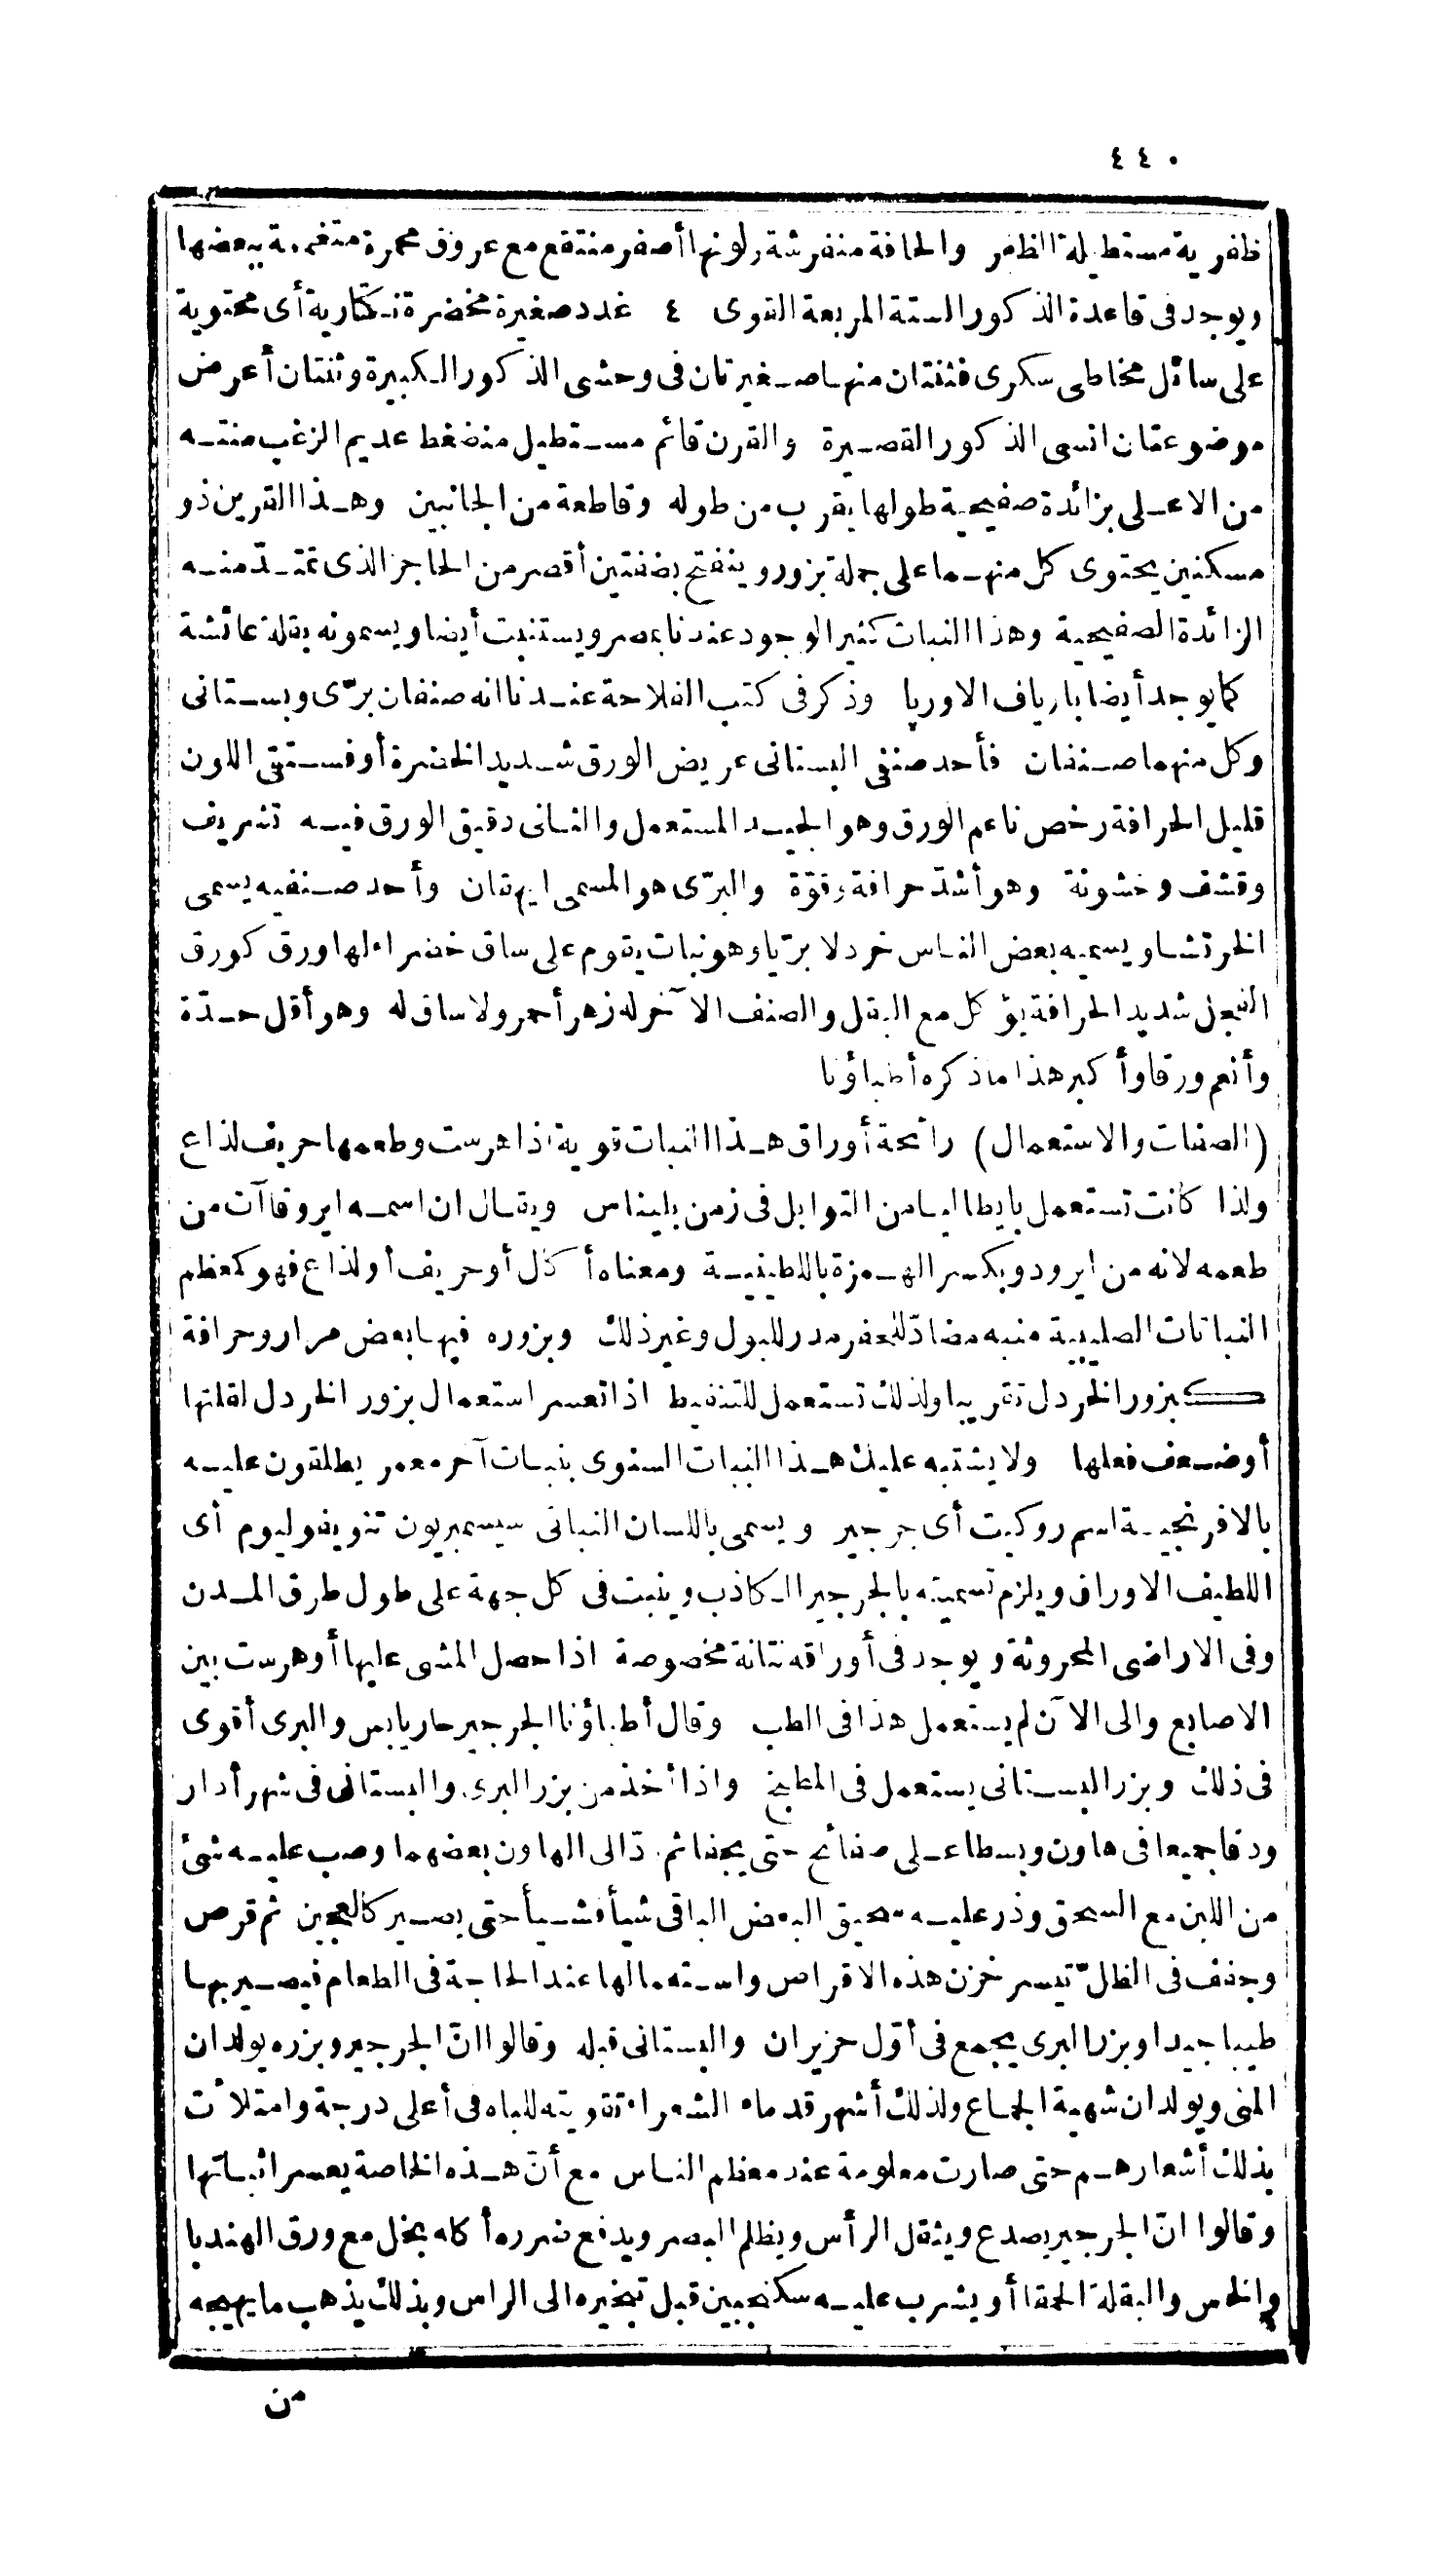 ٤٤٠
ظفرية مستطيلة الظفر والحافة منفرشة ولونها أصفر منتقع مع عروق محمرة متغممة ببعضها
ويوجد فى قاعدة الذكور الستة المربعة القوى ٤ غدد صغيرة مخضرة نكتارية أى محتوية
على سائل مخاطى سكرى فثنتان منها صغيرتان فى وحشى الذكور الكبيرة وثنتان أعرض
موضوعتان انسى الذكور القصيرة والقرن قائم مستطيل منضغط عديم الزغب منته
من الاعلى بزائدة صفيحية طولها يقرب من طوله وقاطعة من الجانبين وهذا القرين ذو
مسكنين يحتوى كل منهما على جملة بزور وينفتح بضفتين أقصر من الحاجز الذى تمتد منه
الزائدة الصفيحية وهذا النبات كثير الوجود عندنا بمصر ويستنبت أيضا ويسمونه بقلة عائشة
كما يوجد أيضا بارياف الاوربا وذكر فى كتب الفلاحة عندنا انه صنفان برّى وبستانى
وكل منهما صنفان فأحد صنفى البستانى عريض الورق شديد الخضرة أو فستقى اللون
قليل الحرافة رخص ناعم الورق وهو الجيد المستعمل والثانى دقيق الورق فيه تشريف
وقشف وخشونة وهو أشدّ حرافة وقوّة والبرّى هو المسمى ايهقان وأحد صنفيه يسمى
الخرتشا ويسميه بعض الناس خردلا برّيا وهو نبات يقوم على ساق خضراء لها ورق كورق
الفجل شديد الحرافة يؤكل مع البقل والصنف الآخر له زهر أحمر ولا ساق له وهو أقل حدّة
وأنعم ورقا وأكبر هذا ما ذكره أطباؤنا
(الصفات والاستعمال) رائحة أوراق هذا النبات قوية اذا هرست وطعمها حريف لذاع
ولذا كانت تستعمل بايطاليا من التوابل فى زمن بليناس ويقال ان اسمه ايروقا آت من
طعمه لانه من ايرودو بكسر الهمزة باللطينية ومعناه أكال أو حريف أو لذاع فهو كمعظم
النباتات الصليبية منبه مضادّ للحفر مدر للبول وغير ذلك وبزوره فيها بعض مرار وحرافة
كبزور الخردل تقريبا ولذلك تستعمل للتنفيط اذا تعسر استعمال بزور الخردل لقلتها
أو ضعف فعلها ولا يشتبه عليك هذا النبات السنوى بنبات آخر معمر يطلقون عليه
بالافرنجية اسم روكيت أى جرجير ويسمى باللسان النباتى سيسمبريون تنويفوليوم أى
اللطيف الاوراق ويلزم تسميته بالجرجير الكاذب وينبت فى كل جهة على طول طرق المدن
وفى الاراضى المحروثة ويوجد فى أوراقه نتانة مخصوصة اذا حصل المشى عليها أو هرست بين
الاصابع والى الآن لم يستعمل هذا فى الطب وقال أطباؤنا الجرجير حار يابس والبرى أقوى
فى ذلك وبزر البستانى يستعمل فى المطابخ واذا أخذ من بزر البرى والبستانى فى شهر أدار
ودقا جميعا فى هاون وبسطا على صفائح حتى يجفا ثم ردّا الى الهاون بعضهما وصب عليه شئ
من اللبن مع السحق وذر عليه سحيق البعض الباقى شيأ فشيأ حتى يصير كالعجين ثم قرص
وجفف فى الظلّ تيسر خزن هذه الاقراص واستعمالها عند الحاجة فى الطعام فيصير بها
طيبا جيدا وبزر البرى يجمع فى أوّل حزيران والبستانى قبله وقالوا انّ الجرجير وبزره يولدان
المنى ويولدان شهية الجماع ولذلك أشهر قدماء الشعراء تقويته للباه فى أعلى درجة وامتلأت
بذلك أشعارهم حتى صارت معلومة عند معظم الناس مع أنّ هذه الخاصة يعسر اثباتها
وقالوا انّ الجرجير يصدع ويثقل الرأس ويظلم البصر ويدفع ضرره أكله بخل مع ورق الهندبا
والخس والبقلة الحمقا أو يشرب عليه سكنجبين قبل تبخيره الى الراس وبذلك يذهب ما يهيجه
من